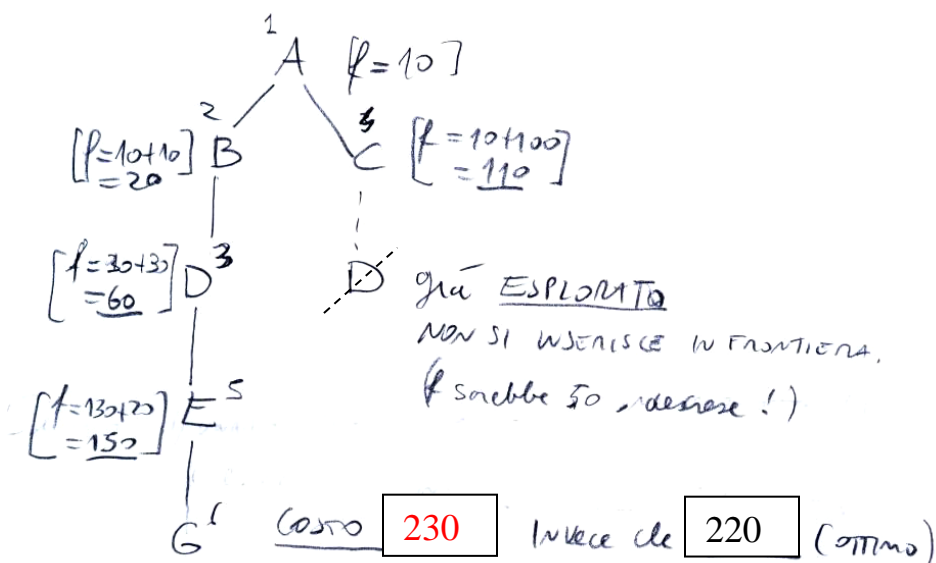 1
A [f=10]
2
[f=10+10] B
=20
4
C [f=10+100]
=110
[f=30+30] D 3
=60
D già ESPLORATO
NON SI INSERISCE IN FRONTIERA.
(f sarebbe 50, decresce!)
[f=130+20] E 5
=150
G 6 COSTO 230 Invece che 220 (OTTIMO)